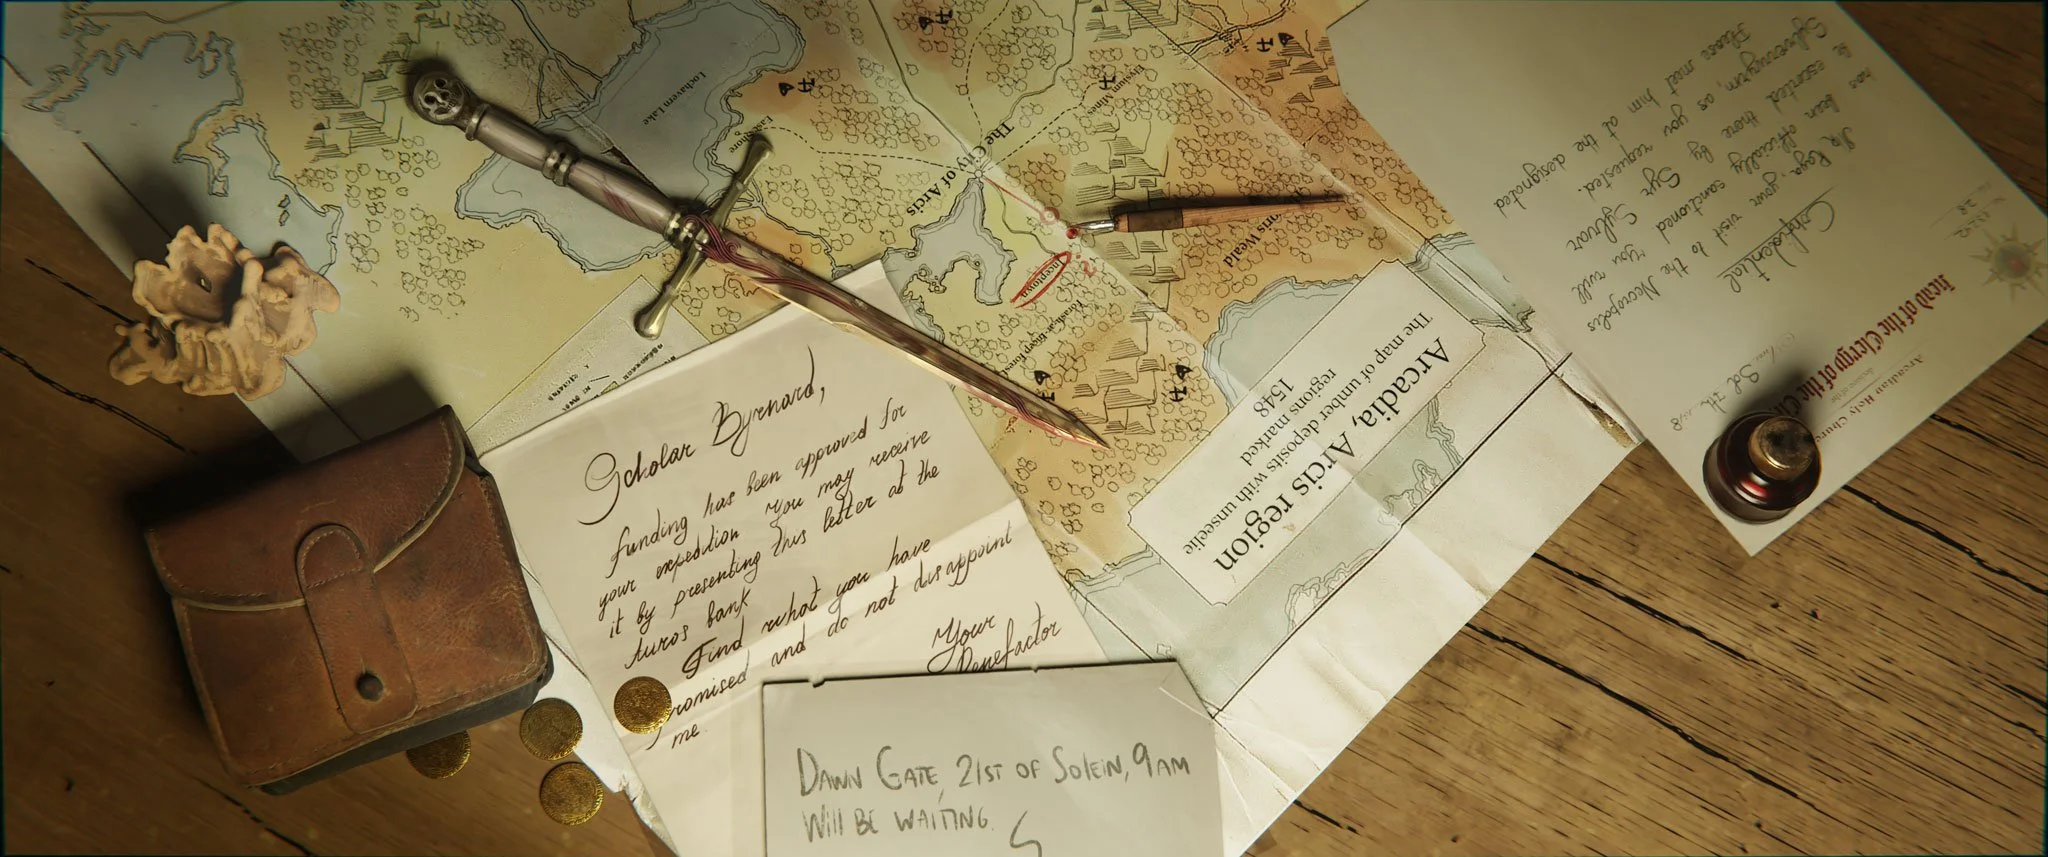 Scholar Byrnard,
funding has been approved for
your expedition you may receive
it by presenting this letter at the
Auros bank
Find what you have
promised and do not disappoint
me.
Your
Benefactor
DAWN GATE, 21ST OF SOLEIN, 9AM
WILL BE WAITING.
S
Arcadia, Arcis region
The map of umber deposits with unseelie
regions marked
1548
Lochhaven Lake
East Shore
The City of Arcis
Elysium Mines
Inceptown
2
Weald
Arcadian Holy Church
Head of the Clergy of the
Confidential
Mr. Raya, your visit to the Necropolis
has been officially sanctioned. You will
be escorted there by Syr Sylvan
Sylvanwyrm, as you requested.
Please meet him at the designated